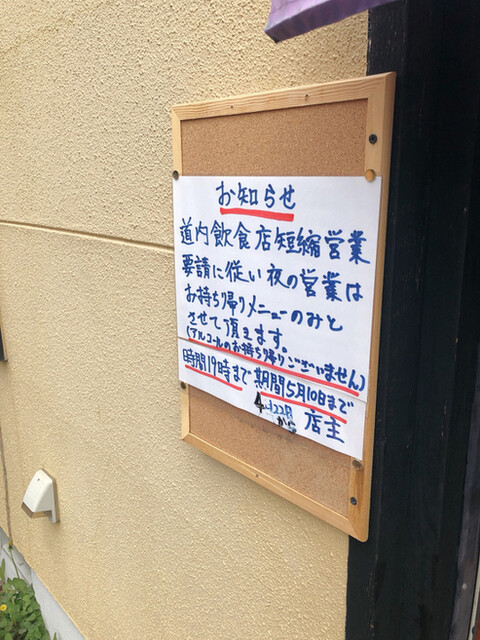 お知らせ
道内飲食店短縮営業
要請に従い夜の営業は
お持ち帰りメニューのみと
させて頂きます。
(アルコールのお持ち帰りございません)
時間19時まで期間5月10日まで
から 店主